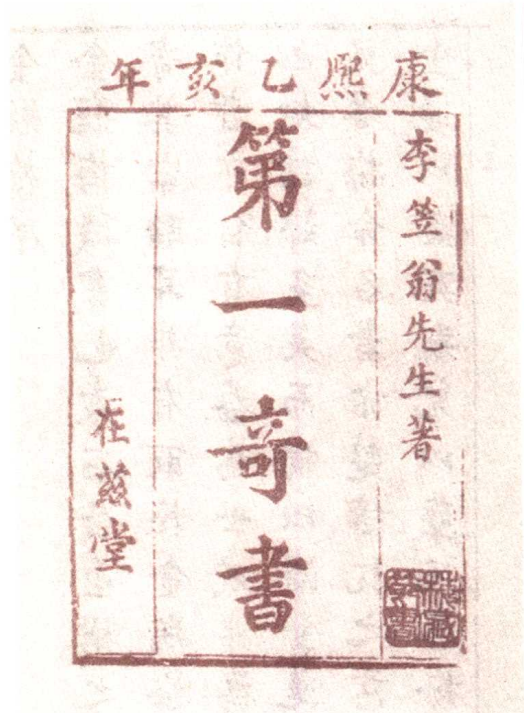 康熙乙亥年
李笠翁先生著
第一奇書
在茲堂